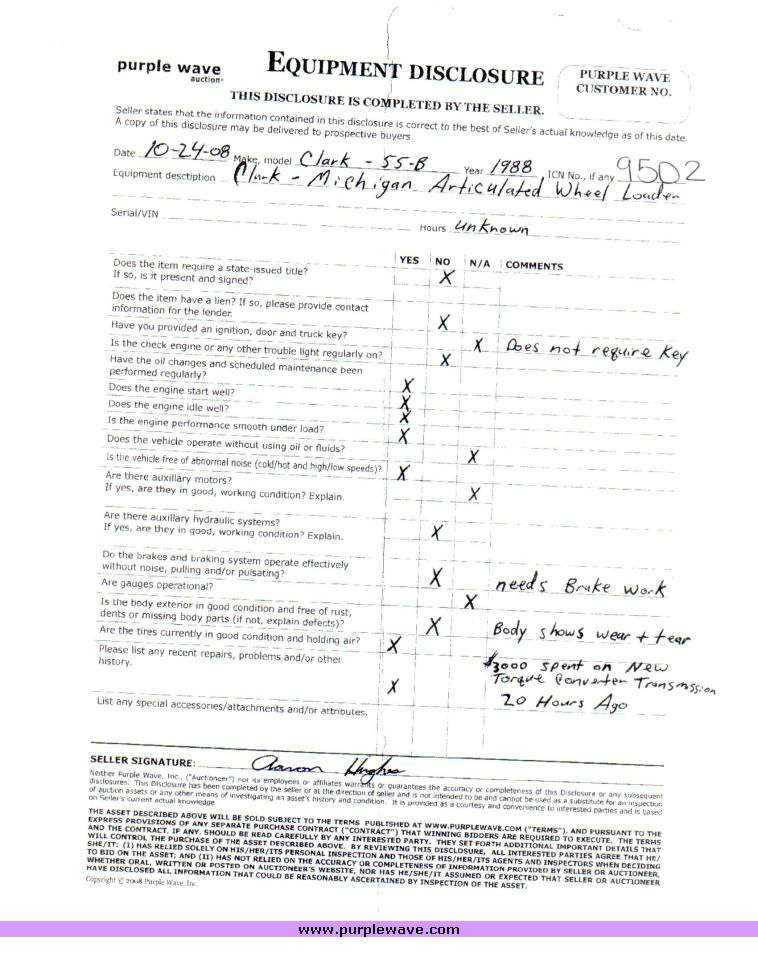 purple wave
auction
EQUIPMENT DISCLOSURE
PURPLE WAVE
CUSTOMER NO.
THIS DISCLOSURE IS COMPLETED BY THE SELLER.
Seller states that the information contained in this disclosure is correct to the best of Seller's actual knowledge as of this date.
A copy of this disclosure may be delivered to prospective buyers
Date 10-24-08 Make, model Clark - 55-B Year 1988 ICN No., if any 9502
Equipment description Clark - Michigan Articulated Wheel Loader
Serial/VIN
Hours unknown
YES NO N/A COMMENTS
Does the item require a state-issued title?
If so, is it present and signed? X
Does the item have a lien? If so, please provide contact
information for the lender. X
Have you provided an ignition, door and truck key? X Does not require Key
Is the check engine or any other trouble light regularly on? X
Have the oil changes and scheduled maintenance been
performed regularly? X
Does the engine start well? X
Does the engine idle well? X
Is the engine performance smooth under load? X
Does the vehicle operate without using oil or fluids? X
Is the vehicle free of abnormal noise (cold/hot and high/low speeds)? X
Are there auxillary motors?
If yes, are they in good, working condition? Explain. X
Are there auxillary hydraulic systems?
If yes, are they in good, working condition? Explain. X
Do the brakes and braking system operate effectively
without noise, pulling and/or pulsating? X needs Brake work
Are gauges operational? X
Is the body exterior in good condition and free of rust,
dents or missing body parts (if not, explain defects)? X Body shows wear + tear
Are the tires currently in good condition and holding air? X
Please list any recent repairs, problems and/or other
history. X $3000 spent on New
Torque Converter Transmission
20 Hours Ago
List any special accessories/attachments and/or attributes.
SELLER SIGNATURE: Aaron Hughes
Neither Purple Wave, Inc., ("Auctioneer") nor its employees or affiliates warrants or guarantees the accuracy or completeness of this Disclosure or any subsequent
disclosures. This Disclosure has been completed by the seller or at the direction of seller and is not intended to be and cannot be used as a substitute for an inspection
of auction assets or any other means of investigating an asset's history and condition. It is provided as a courtesy and convenience to interested parties and is based
on Seller's current actual knowledge
THE ASSET DESCRIBED ABOVE WILL BE SOLD SUBJECT TO THE TERMS PUBLISHED AT WWW.PURPLEWAVE.COM ("TERMS"), AND PURSUANT TO THE
EXPRESS PROVISIONS OF ANY SEPARATE PURCHASE CONTRACT ("CONTRACT") THAT WINNING BIDDERS ARE REQUIRED TO EXECUTE. THE TERMS
AND THE CONTRACT, IF ANY, SHOULD BE READ CAREFULLY BY ANY INTERESTED PARTY. THEY SET FORTH ADDITIONAL IMPORTANT DETAILS THAT
WILL CONTROL THE PURCHASE OF THE ASSET DESCRIBED ABOVE. BY REVIEWING THIS DISCLOSURE, ALL INTERESTED PARTIES AGREE THAT HE/
SHE/IT: (I) HAS RELIED SOLELY ON HIS/HER/ITS PERSONAL INSPECTION AND THOSE OF HIS/HER/ITS AGENTS AND INSPECTORS WHEN DECIDING
TO BID ON THE ASSET; AND (II) HAS NOT RELIED ON THE ACCURACY OR COMPLETENESS OF INFORMATION PROVIDED BY SELLER OR AUCTIONEER,
WHETHER ORAL, WRITTEN OR POSTED ON AUCTIONEER'S WEBSITE, NOR HAS HE/SHE/IT ASSUMED OR EXPECTED THAT SELLER OR AUCTIONEER
HAVE DISCLOSED ALL INFORMATION THAT COULD BE REASONABLY ASCERTAINED BY INSPECTION OF THE ASSET.
Copyright © 2008 Purple Wave, Inc.
www.purplewave.com